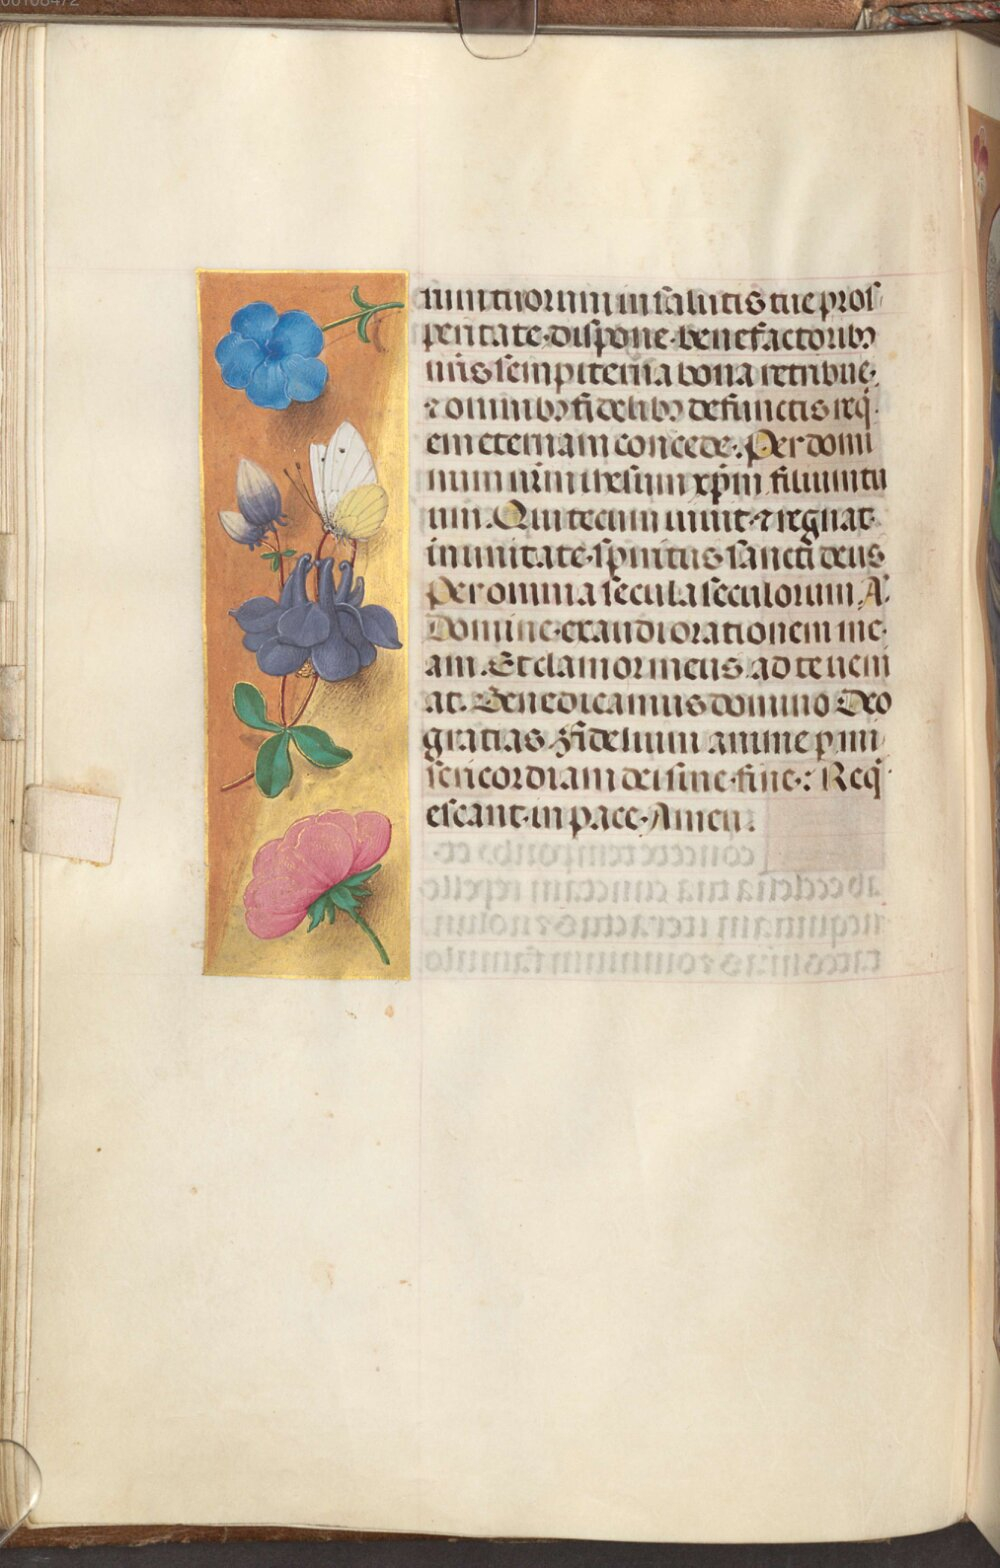 muntuorum in salutis tue pros
peritate dispone. benefactorib9
nr̃is sempiterna bona retribue.
⁊ omnib9 fidelib9 defunctis req̃
em eternam concede. Per domi
num nr̃m ihesum xp̃m filium tu
um. Qui tecum uiuit ⁊ regnat
in unitate spiritus sancti deus
Per omnia secula seculorum. A.
Domine exaudi orationem me
am. Et clamor meus ad te ueni
at. Benedicamus domino Deo
gratias. Fidelium anime p mi
sericordiam dei sine fine. Req̃
escant in pace. Amen.